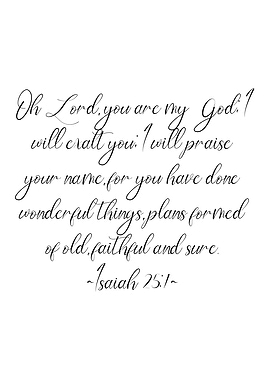 Oh Lord, you are my God; I
will exalt you; I will praise
your name, for you have done
wonderful things, plans formed
of old, faithful and sure.
~Isaiah 25:1~